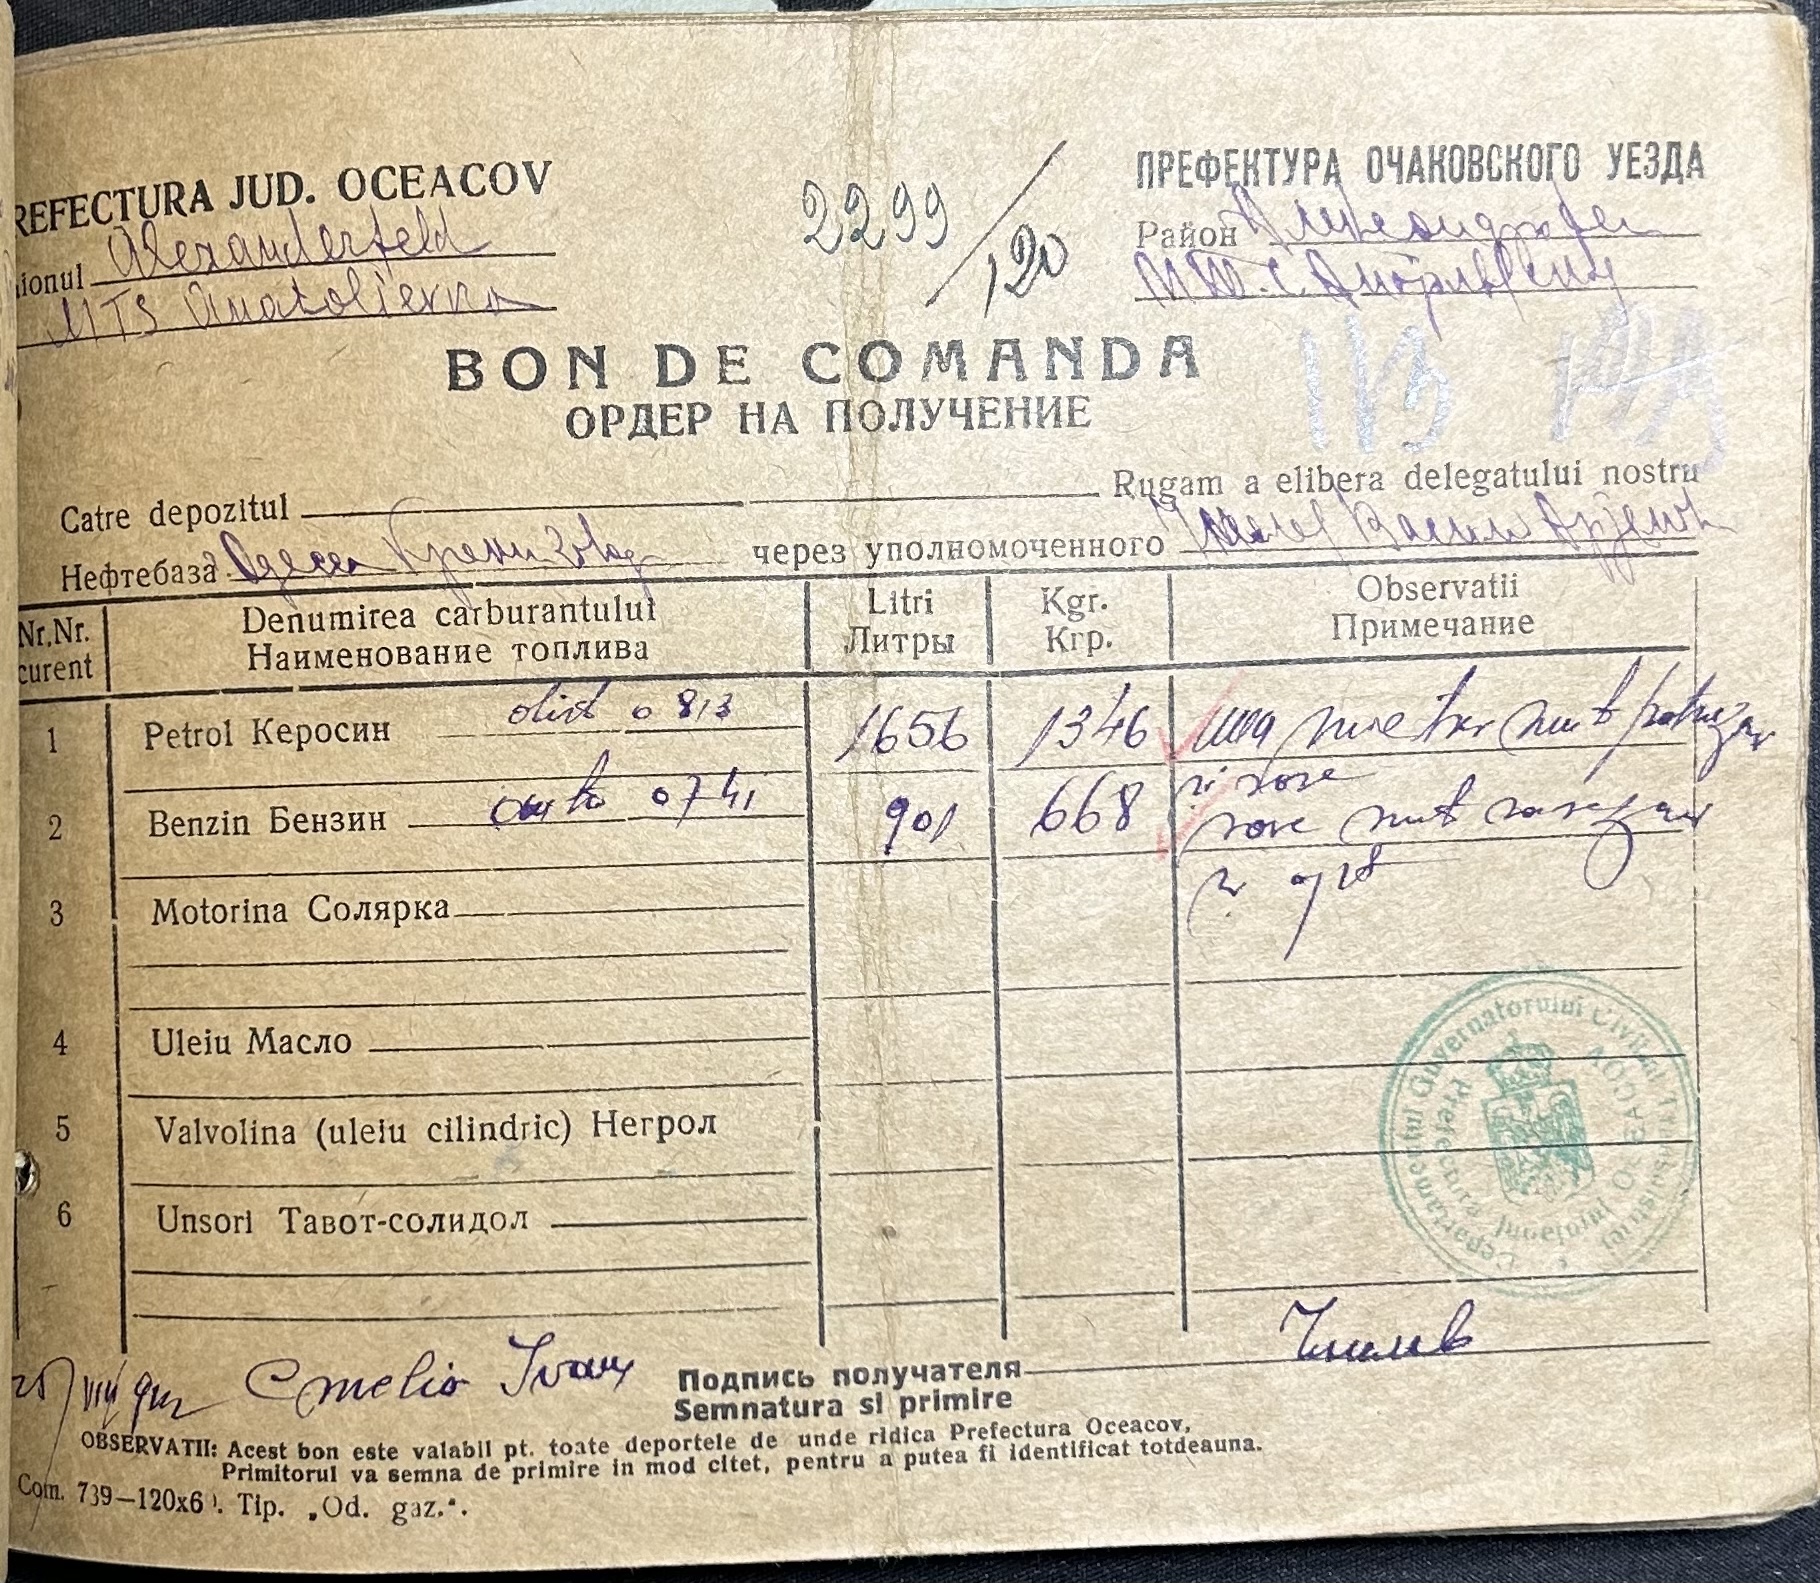 REFECTURA JUD. OCEACOV
ionul Alexanderfeld
MTS Anatolievna
2299/120
ПРЕФЕКТУРА ОЧАКОВСКОГО УЕЗДА
Район
BON DE COMANDA
ОРДЕР НА ПОЛУЧЕНИЕ
113
Catre depozitul Rugam a elibera delegatului nostru
Нефтебаза Одеса через уполномоченного
Nr,Nr. curent
Denumirea carburantului
Наименование топлива
Litri
Литры
Kgr.
Кгр.
Observatii
Примечание
1 Petrol Керосин 0 813 1656 1346 una mie trei sute patruzeci
si sase
2 Benzin Бензин 0741 901 668 sase sute sasezeci
si opt
3 Motorina Солярка
4 Uleiu Масло
5 Valvolina (uleiu cilindric) Негрол
6 Unsori Тавот-солидол
Departamentul Guvernatorului Civil al Transnistriei
Prefectura Judetului OCEACOV
Подпись получателя
Semnatura si primire
OBSERVATII: Acest bon este valabil pt. toate deportele de unde ridica Prefectura Oceacov,
Primitorul va semna de primire in mod citet, pentru a putea fi identificat totdeauna.
Com. 739—120x6 . Tip. „Od. gaz.“.